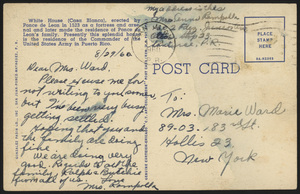 White House (Casa Blanca), erected by
Ponce de Leon in 1523 as a fortress and arse-
nal and later made the residence of Ponce de
Leon's family. Presently the splendid house
is the residence of the Commander of the
United States Army in Puerto Rico.
8/29/60
Dear Mrs. Ward,
Please excuse me for
not writing to you
sooner. I've been busy
getting settled.
Hoping that you and
the family are being
fine.
We are enjoying very
good. Regards to all the
family. Ralph &
from all of us. Love
Mrs. Rampolla
my address is
POST CARD
To:
Mrs. Marie Ward
89-03. 183 St.
Hollis 23
New York